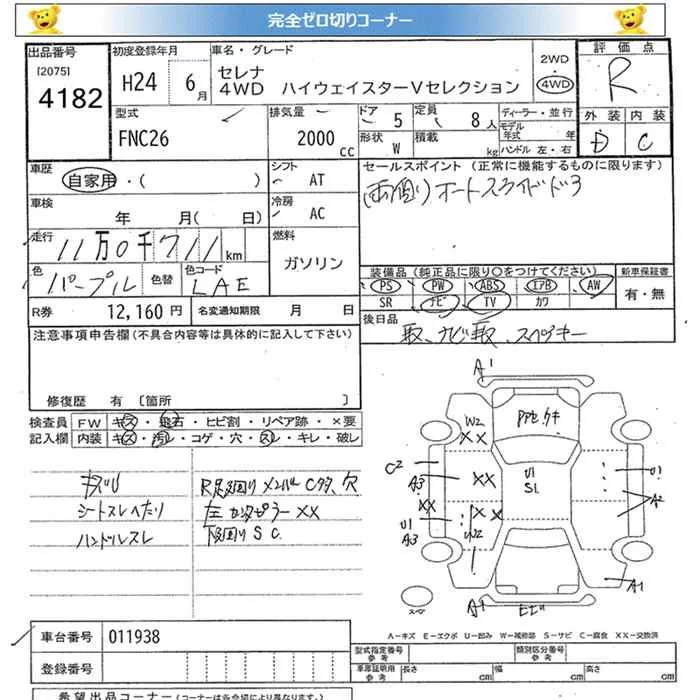 完全ゼロ切りコーナー
出品番号 初度登録年月 車名・グレード 2WD 評価点
[2075] 4182 H24 6月 セレナ 4WD ハイウェイスターVセレクション 4WD R
型式 排気量 ドア 定員 ディーラー・並行 外装 内装
FNC26 2000cc 5 8人 モデル年式 年 D C
形状 W 積載 kg ハンドル 左・右
車歴 シフト セールスポイント (正常に機能するものに限ります)
自家用・( ) AT 両側オートスライドドア
車検 冷房
年 月( 日) AC
走行 燃料
11万0千711km ガソリン
色 色替 色コード 装備品 (純正品に限り○をつけてください) 新車保証書
パープル LAE PS PW ABS エアB AW 有・無
SR ナビ TV カワ
R券 12,160円 名変通知期限 月 日 後日品
注意事項申告欄(不具合内容等は具体的に記入して下さい) 取、ナビ取、スペアキー
修復歴 有 [箇所 ]
検査員 FW キズ・飛石・ヒビ割・リペア跡・×要
記入欄 内装 キズ・汚レ・コゲ・穴・スレ・キレ・破レ
シートスレへたり 左センターピラーXX
ハンドルスレ 下回りS C
A1
W2
XX
C2
A3
XX
U1
S1
U1
XX
XX
U1
A3
A2
A1
A1
A-キズ E-エクボ U-凹み W-補修跡 S-サビ C-腐食 XX-交換済
車台番号 011938 型式指定番号 参考 類別区分番号 参考
登録番号 車庫証明用 参考 長さ cm 幅 cm 高さ cm
希望出品コーナー(コーナーは各会場により異なります。)